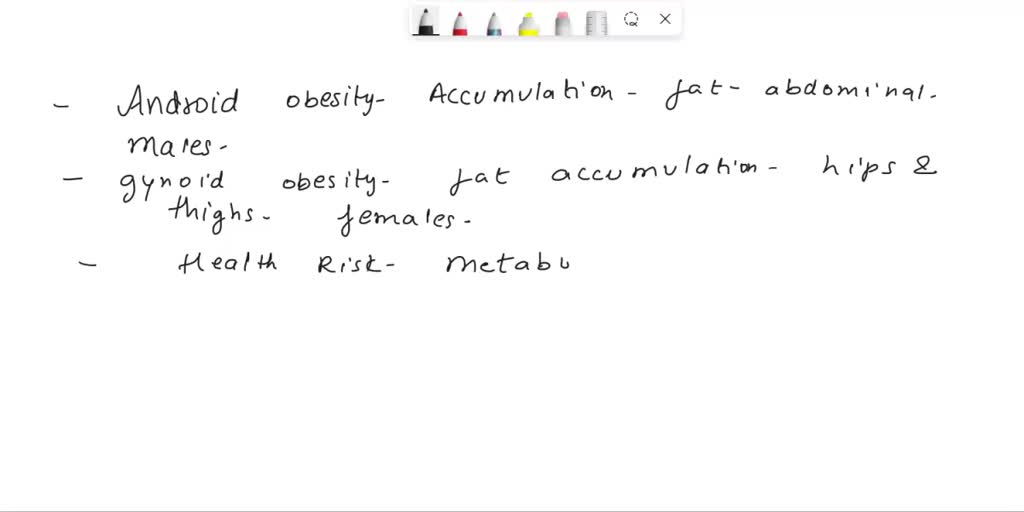 - Android obesity- Accumulation - fat - abdominal.
males-
- gynoid obesity- fat accumulation - hips &
thighs- females-
- Health Risk- metabo